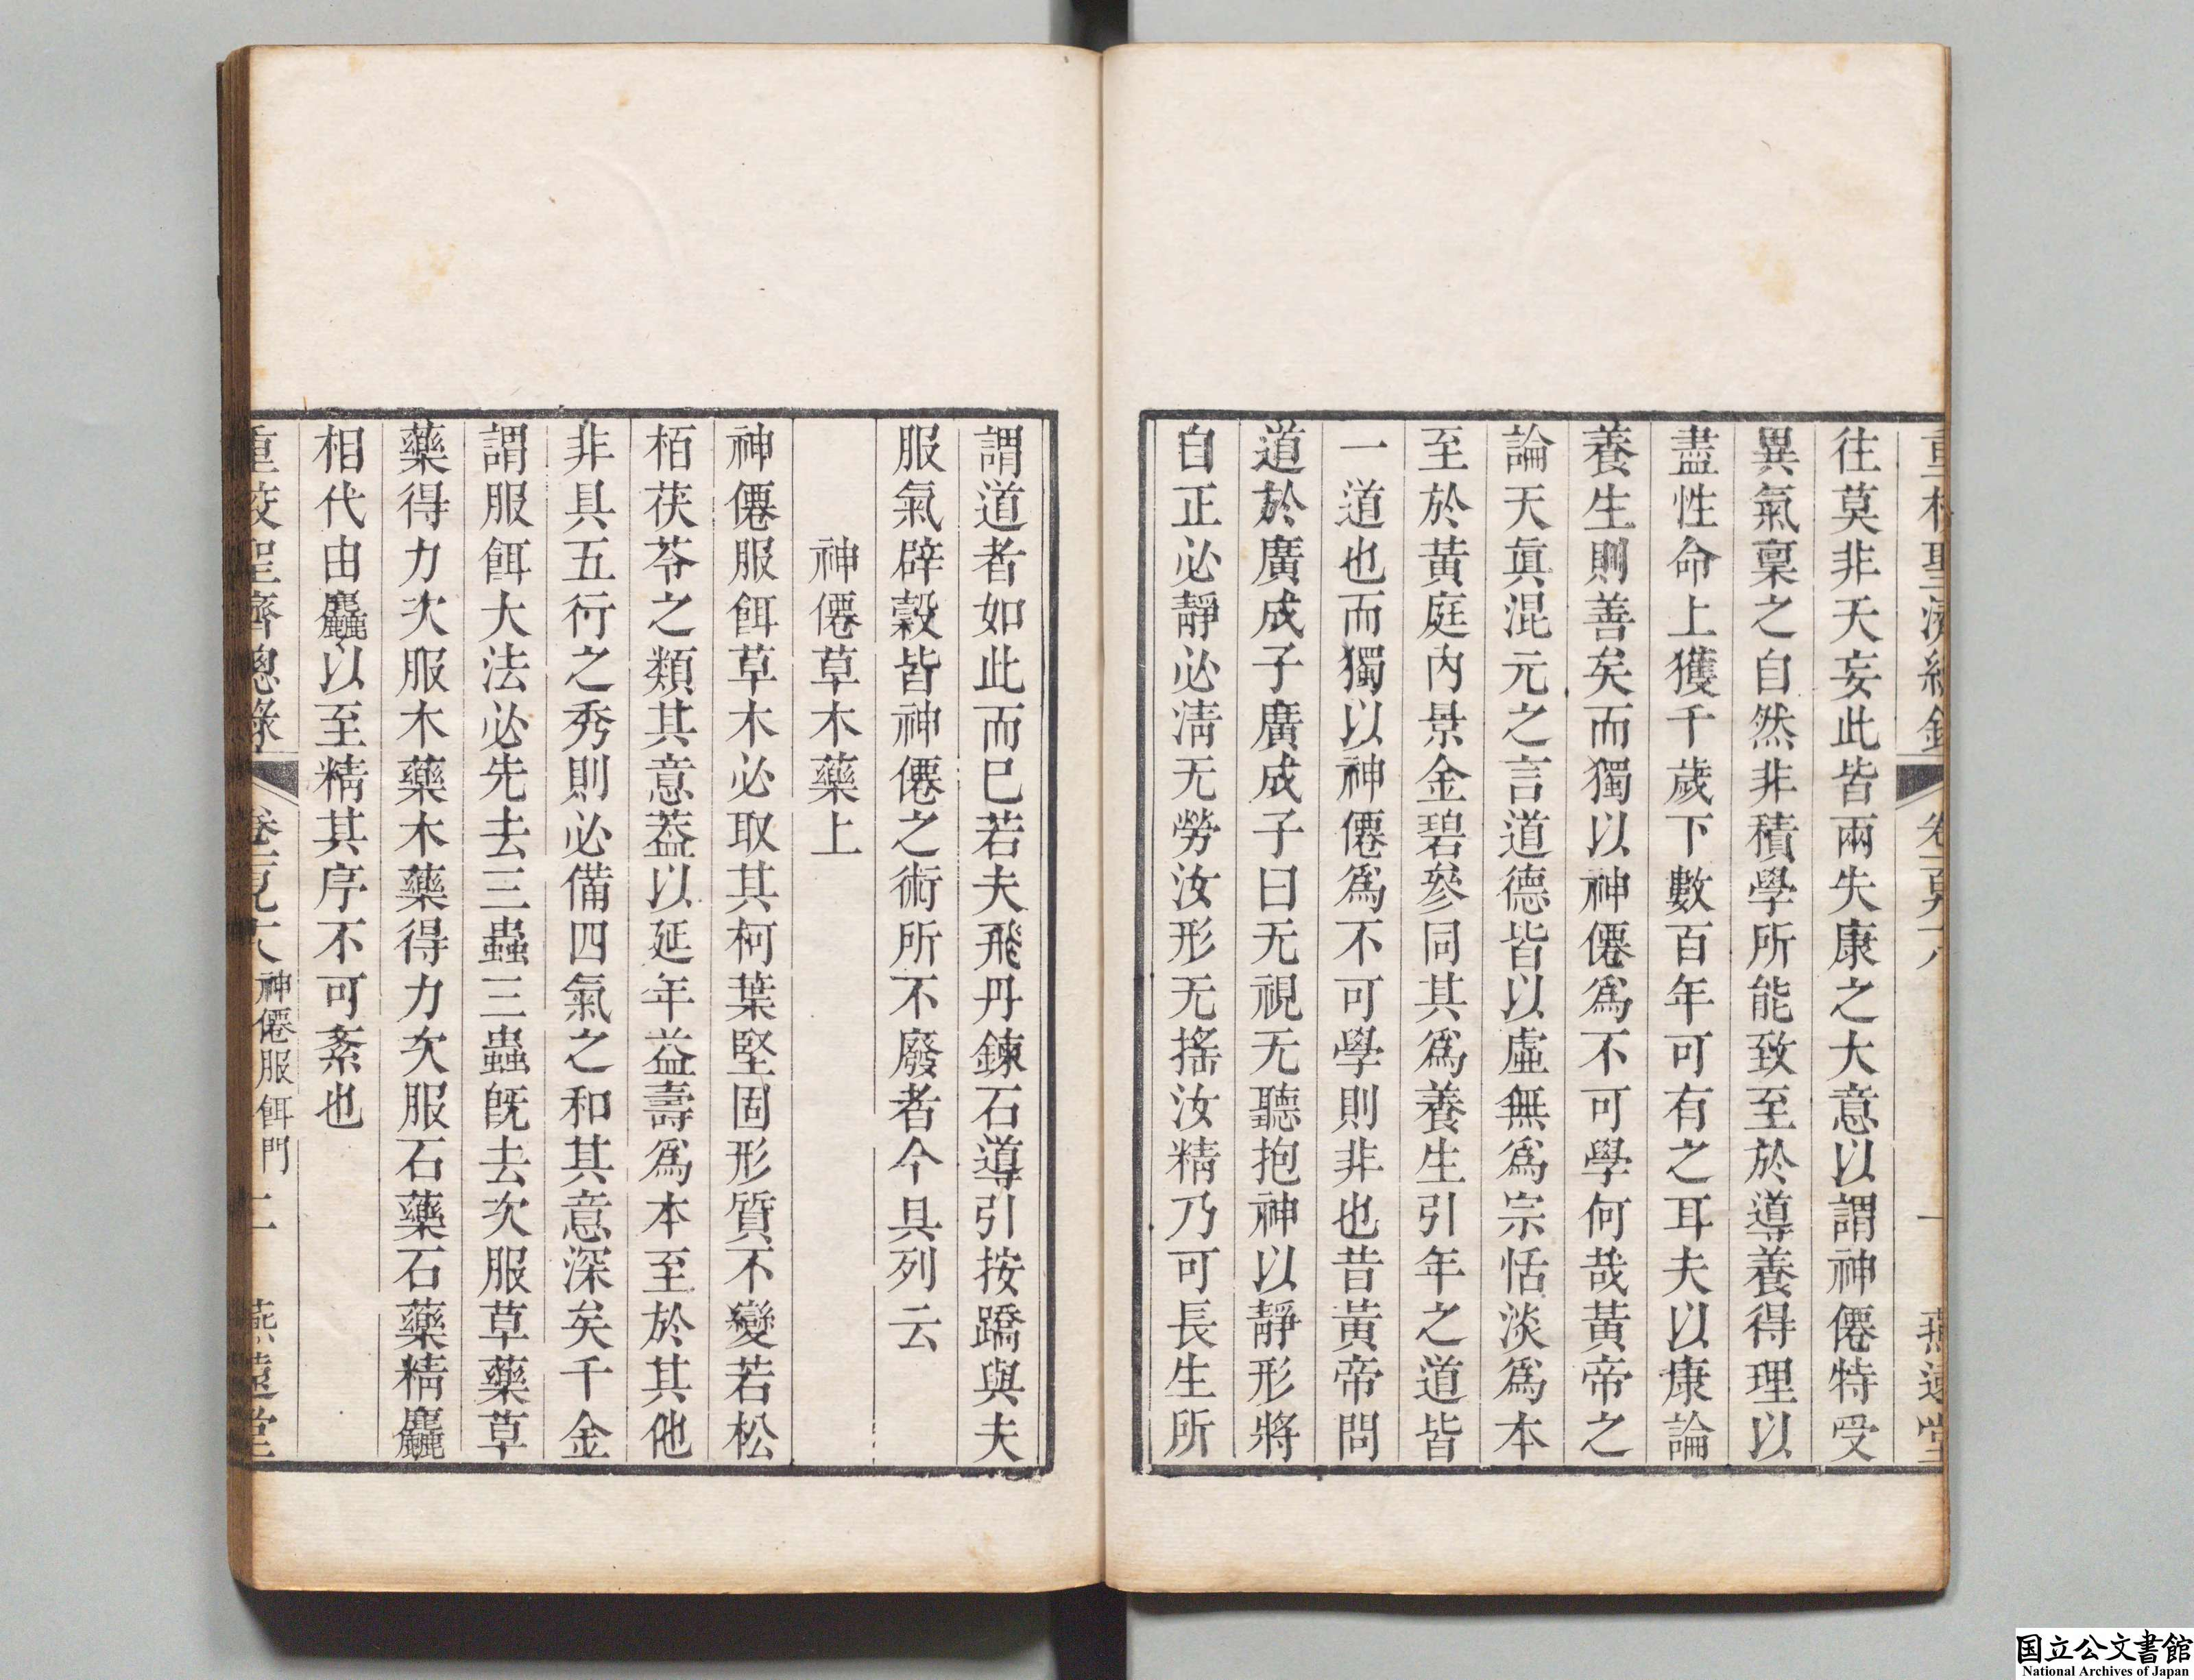 重校聖濟總錄 卷一百九十八 一 燕遠堂
往莫非夭妄此皆兩失康之大意以謂神僊特受
異氣稟之自然非積學所能致至於導養得理以
盡性命上獲千歲下數百年可有之耳夫以康論
養生則善矣而獨以神僊爲不可學何哉黃帝之
論天眞混元之言道德皆以虛無爲宗恬淡爲本
至於黃庭內景金碧參同其爲養生引年之道皆
一道也而獨以神僊爲不可學則非也昔黃帝問
道於廣成子廣成子曰无視无聽抱神以靜形將
自正必靜必淸无勞汝形无搖汝精乃可長生所
謂道者如此而巳若夫飛丹鍊石導引按蹻與夫
服氣辟穀皆神僊之術所不廢者今具列云
神僊草木藥上
神僊服餌草木必取其柯葉堅固形質不變若松
栢茯苓之類其意葢以延年益壽爲本至於其他
非具五行之秀則必備四氣之和其意深矣千金
謂服餌大法必先去三蟲三蟲旣去次服草藥草
藥得力次服木藥木藥得力次服石藥石藥精麤
相代由麤以至精其序不可紊也
重校聖濟總錄 卷一百九十八 神僊服餌門 二 燕遠堂
国立公文書館
National Archives of Japan